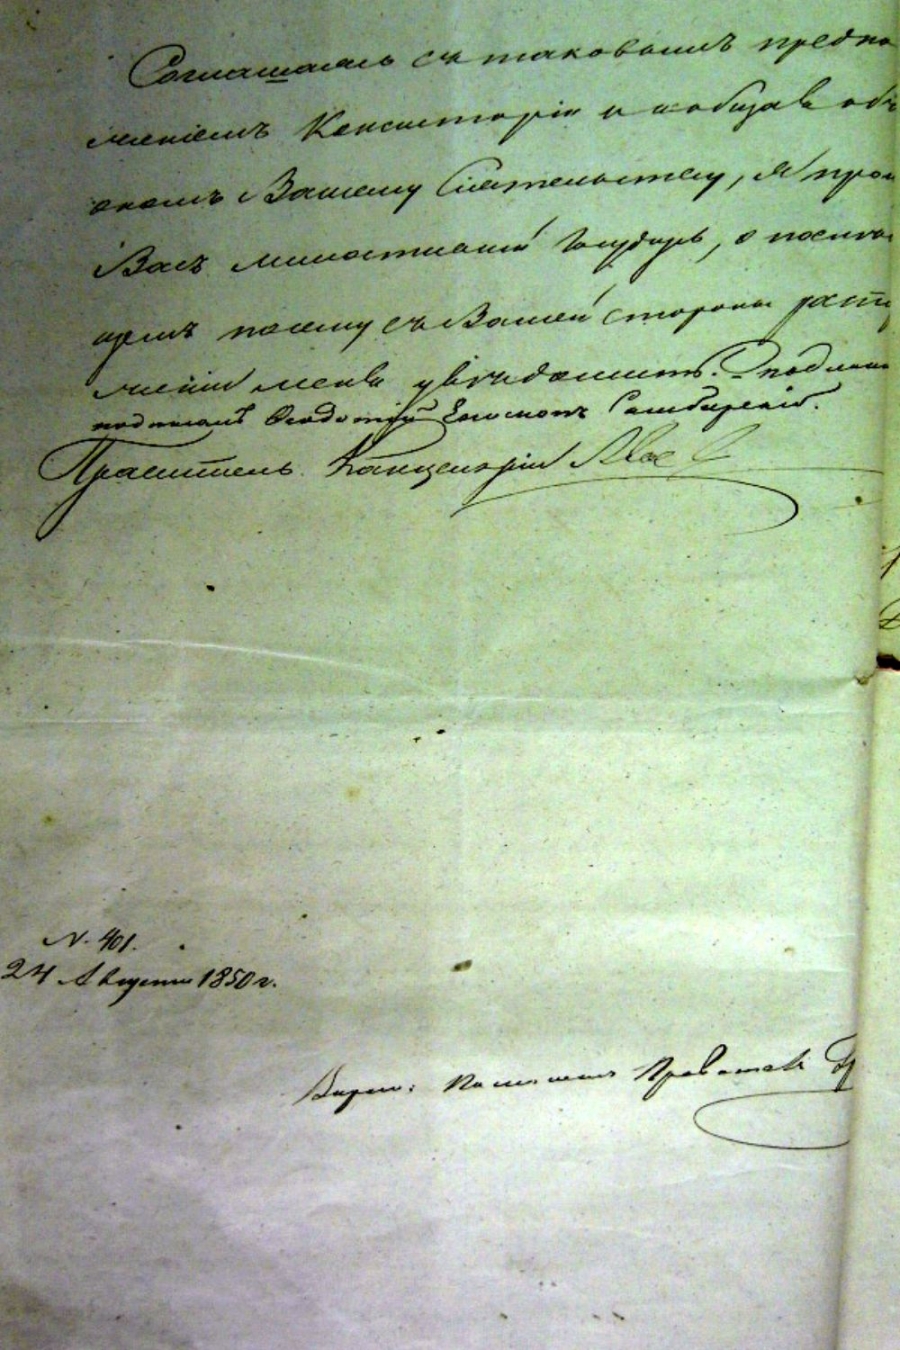 Соглашаясь съ таковымъ предпо
ложеніемъ Консисторіи и сообщая объ
ономъ Вашему Сіятельству, я прошу
Васъ милостивый Государь, о послѣдую
щемъ посему съ Вашей стороны распоря
женіи меня увѣдомить. Подлинное
подписалъ Ѳеодотій Епископъ Симбирскій.
Правитель Канцеляріи
N. 401.
24 Августа 1850 г.
Вѣрно: